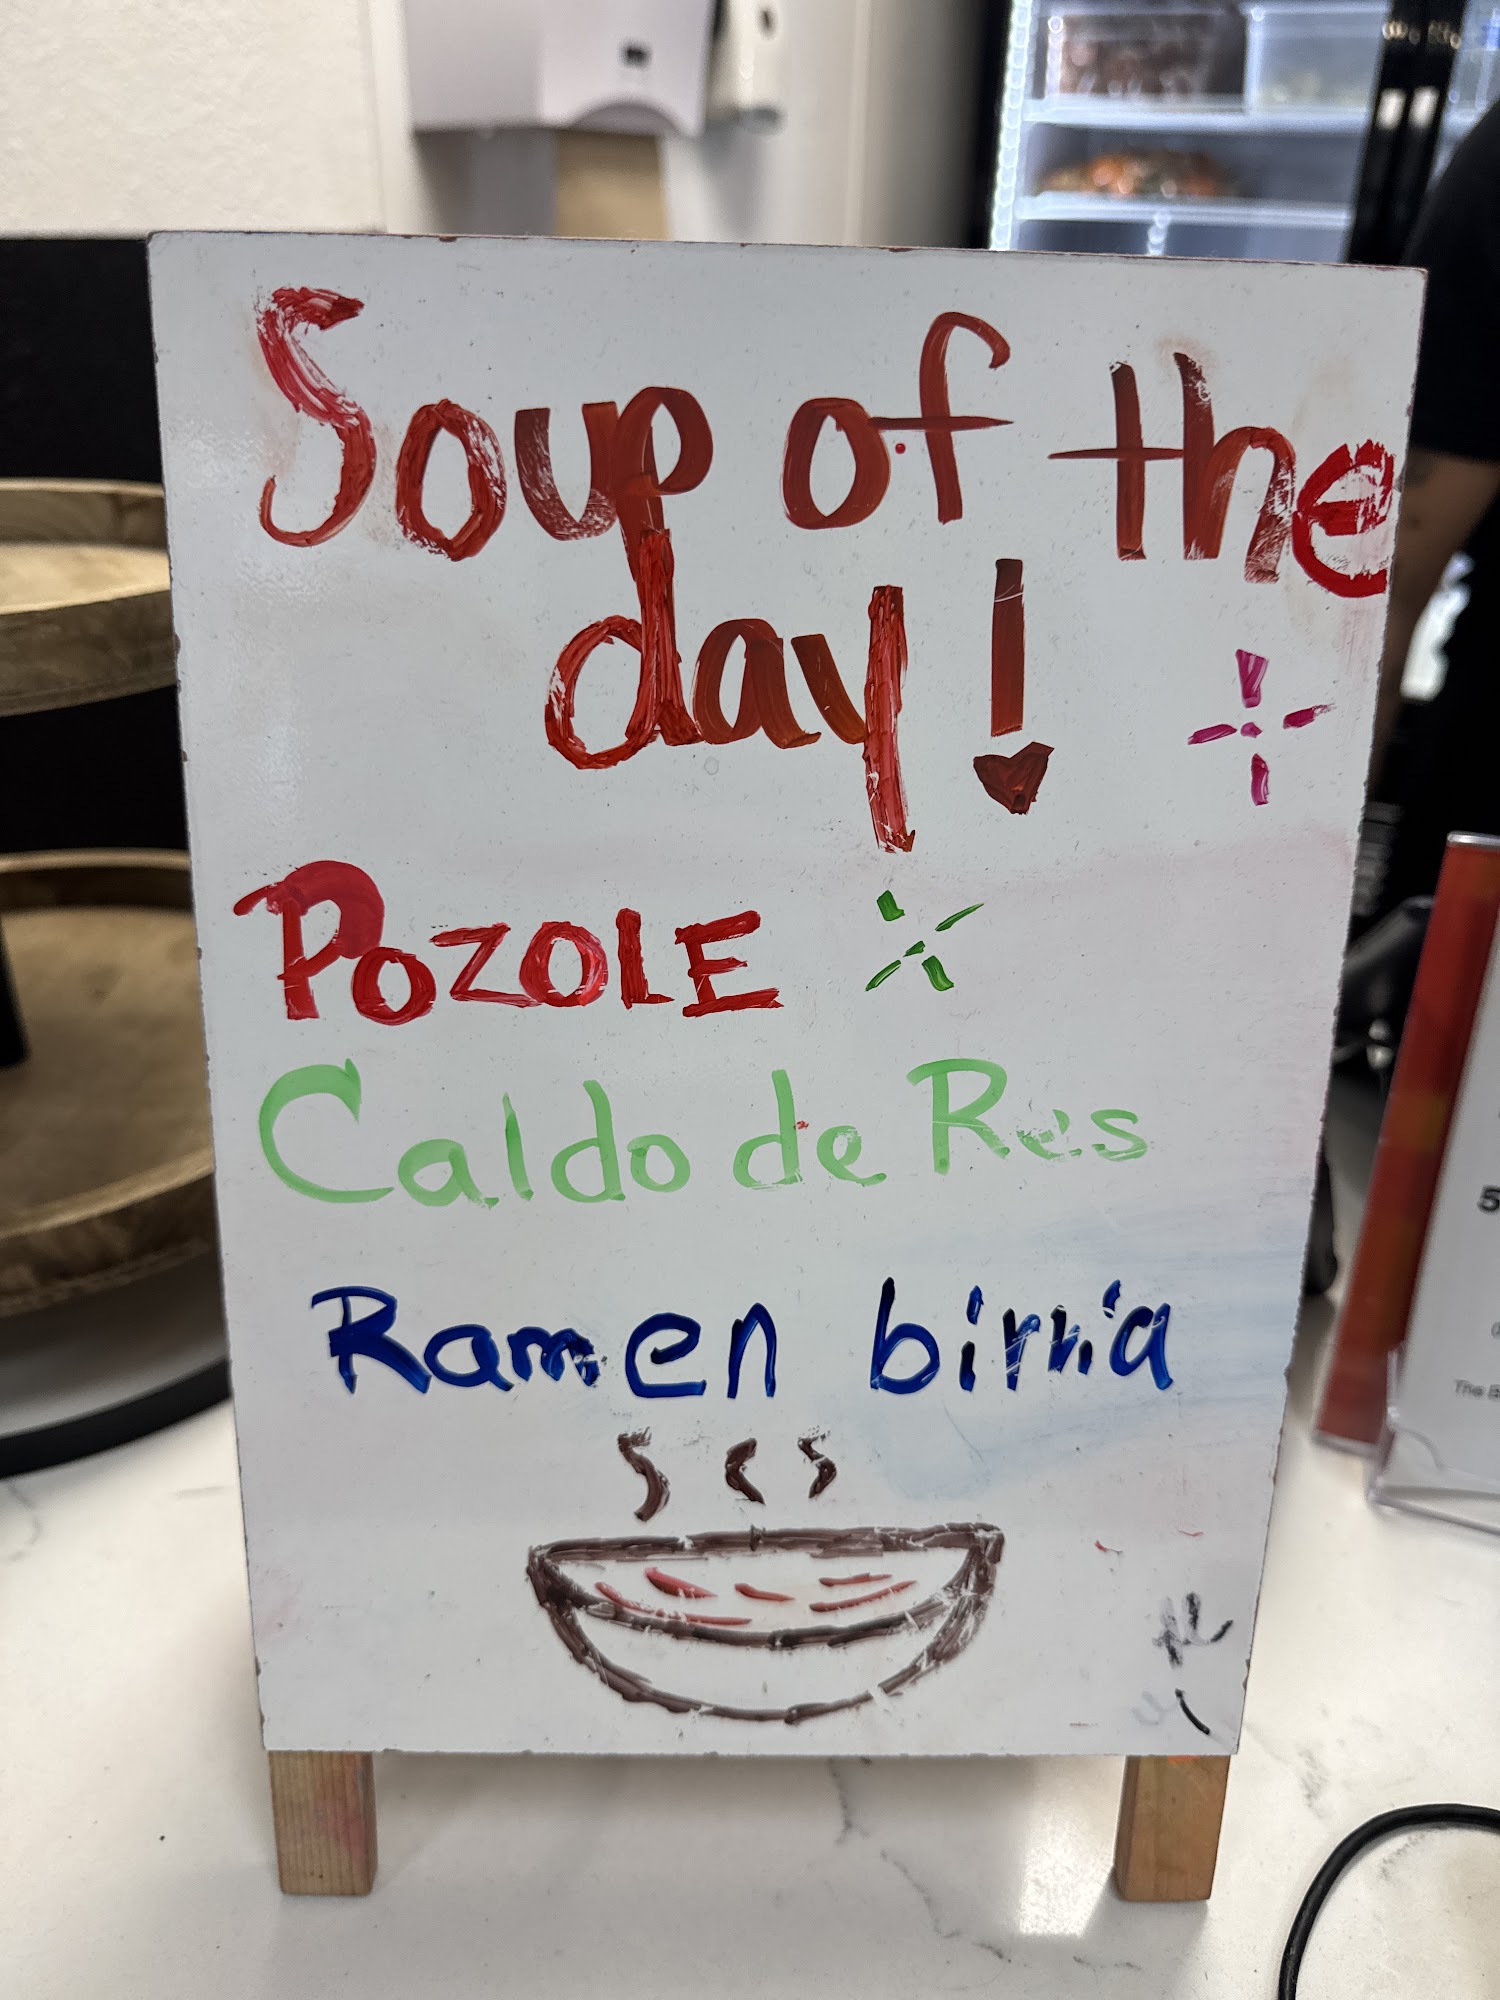 Soup of the
day!
POZOLE
Caldo de Res
Ramen birria
5
The B